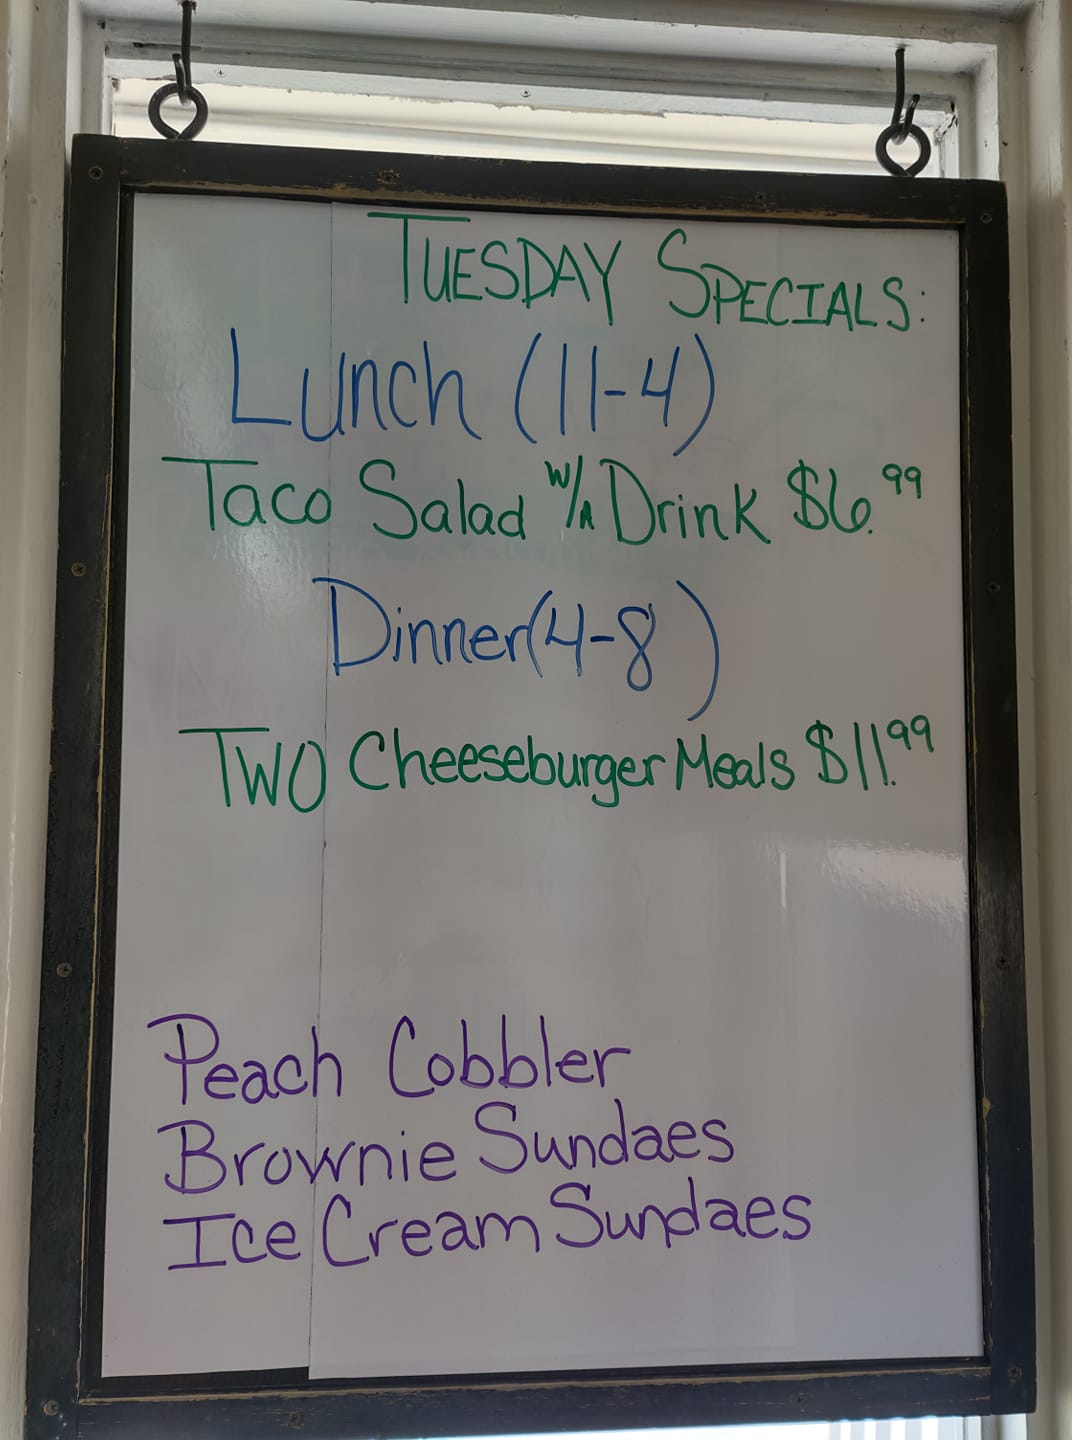 TUESDAY SPECIALS:
Lunch (11-4)
Taco Salad w/A Drink $6.99
Dinner (4-8)
TWO Cheeseburger Meals $11.99
Peach Cobbler
Brownie Sundaes
Ice Cream Sundaes